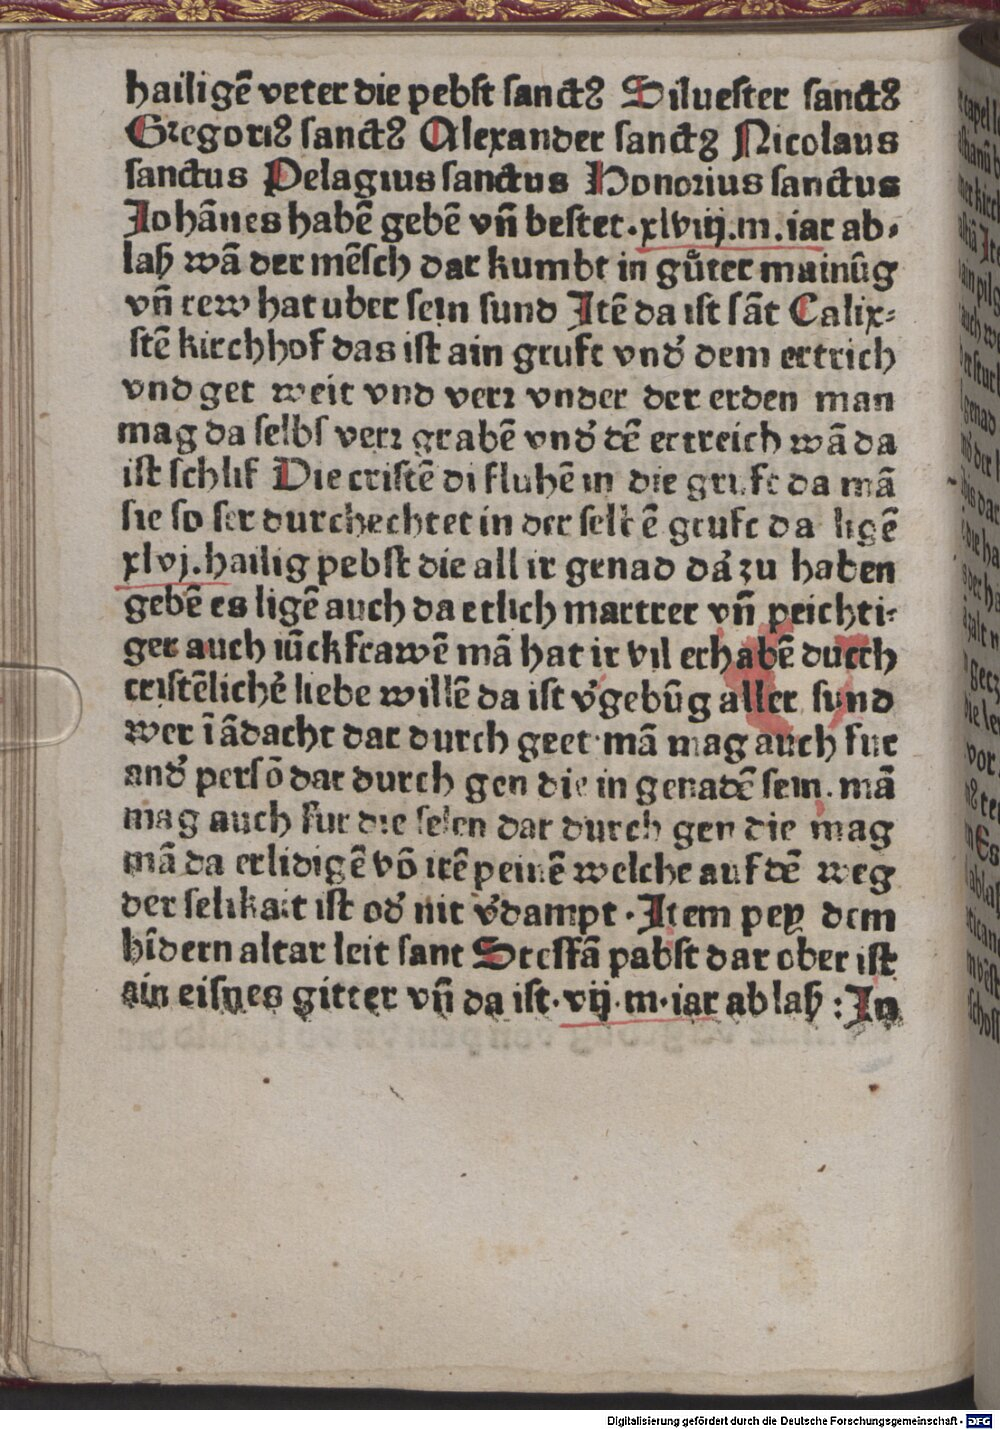 hailigē veter die pebst sanctꝰ Siluester sanctꝰ
Gregoriꝰ sanctꝰ Alexander sanctꝰ Nicolaus
sanctus Pelagius sanctus Honorius sanctus
Johānes habē gebē vn̄ bestet·xlviij.m.iar ab⸗
laß wā der mēsch dar kumbt in gůter mainūg
vn̄ rew hat uber sein sund Jtē da ist sāt Calix⸗
stē kirchhof das ist ain gruft vnd' dem ertrich
vnd get weit vnd verr vnder der erden man
mag da selbs verr grabē vnd' dē ertreich wā da
ist schlif Die cristē di fluhē in die gruft da mā
sie so ser durchechtet in der selbē gruft da ligē
xlvj.hailig pebst die all ir genad da'zu haben
gebē es ligē auch da etlich martrer vn̄ peichti⸗
ger auch iūckfrawē mā hat ir vil erhabē durch
cristēliche' liebe willē da ist v'gebūg aller sund
wer ī ādacht dar durch geet·mā mag auch fur
and' persō dar durch gen die in genadē sein.mā
mag auch fur die selen dar durch gen die mag
mā da erlidigē vō irē peinē welche auf dē weg
der selikait ist od' nit v'dampt·Jtem pey dem
hīdern altar leit sant Steffā pabst dar ober ist
ain eisnes gitter vn̄ da ist·vij·m·iar ablaß:Jn
Digitalisierung gefördert durch die Deutsche Forschungsgemeinschaft - DFG